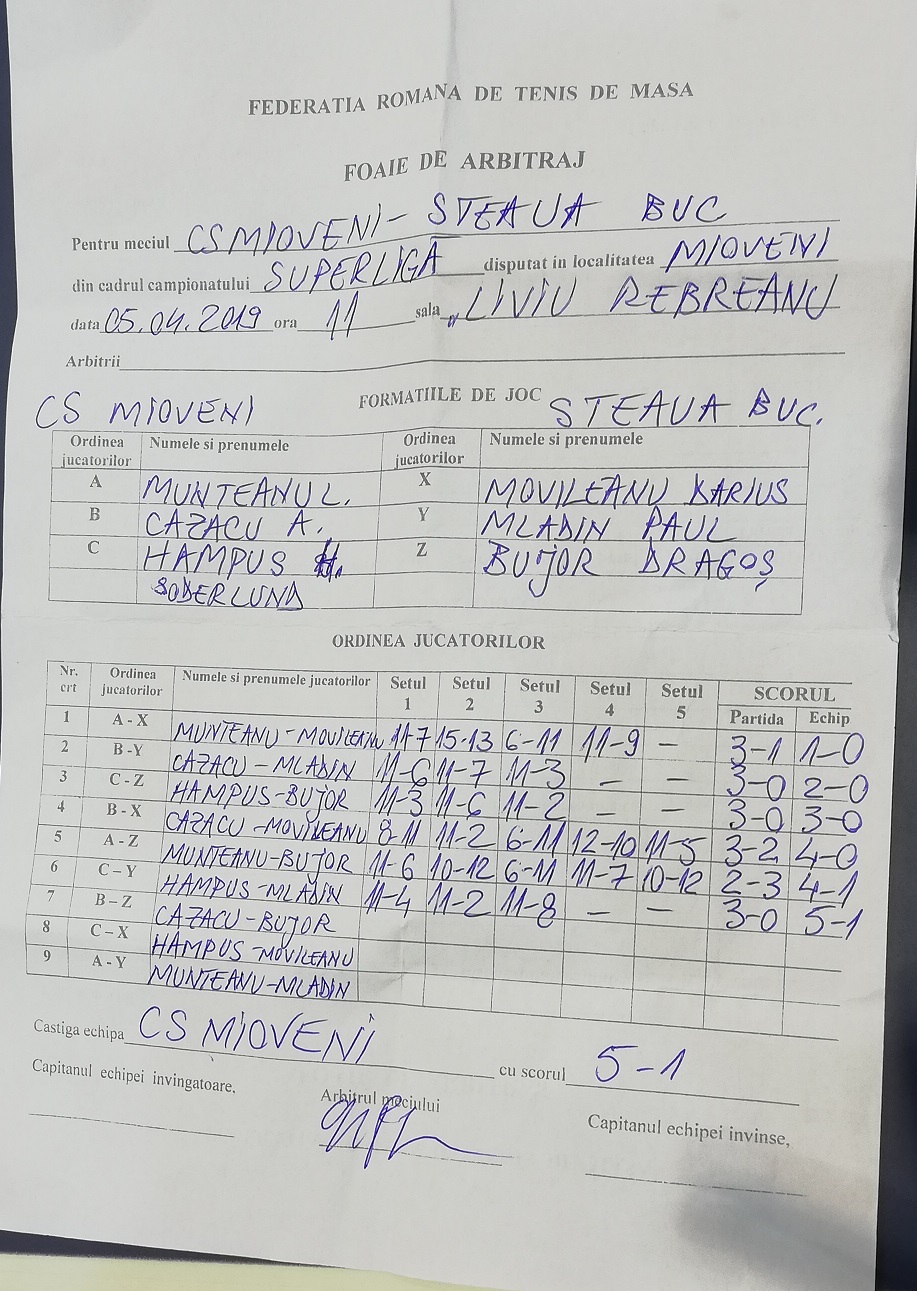 FEDERATIA ROMANA DE TENIS DE MASA
FOAIE DE ARBITRAJ
Pentru meciul CS MIOVENI - STEAUA BUC
din cadrul campionatului SUPERLIGA disputat in localitatea MIOVENI
data 05.04.2019 ora 11 sala „LIVIU REBREANU
Arbitrii
CS MIOVENI FORMATIILE DE JOC STEAUA BUC.
Ordinea jucatorilor Numele si prenumele Ordinea jucatorilor Numele si prenumele
A MUNTEANU L. X MOVILEANU DARIUS
B CAZACU A. Y MLADIN PAUL
C HAMPUS Z BUJOR DRAGOȘ
SODERLUND
ORDINEA JUCATORILOR
Nr. crt Ordinea jucatorilor Numele si prenumele jucatorilor Setul 1 Setul 2 Setul 3 Setul 4 Setul 5 SCORUL
Partida Echip
1 A - X MUNTEANU - MOVILEANU 11-7 15-13 6-11 11-9 — 3-1 1-0
2 B - Y CAZACU - MLADIN 11-6 11-7 11-3 — — 3-0 2-0
3 C - Z HAMPUS - BUJOR 11-3 11-6 11-2 — — 3-0 3-0
4 B - X CAZACU - MOVILEANU 8-11 11-2 6-11 12-10 11-5 3-2 4-0
5 A - Z MUNTEANU - BUJOR 11-6 10-12 6-11 11-7 10-12 2-3 4-1
6 C - Y HAMPUS - MLADIN 11-4 11-2 11-8 — — 3-0 5-1
7 B - Z CAZACU - BUJOR
8 C - X HAMPUS - MOVILEANU
9 A - Y MUNTEANU - MLADIN
Castiga echipa CS MIOVENI cu scorul 5-1
Capitanul echipei invingatoare, Arbitrul meciului Capitanul echipei invinse,